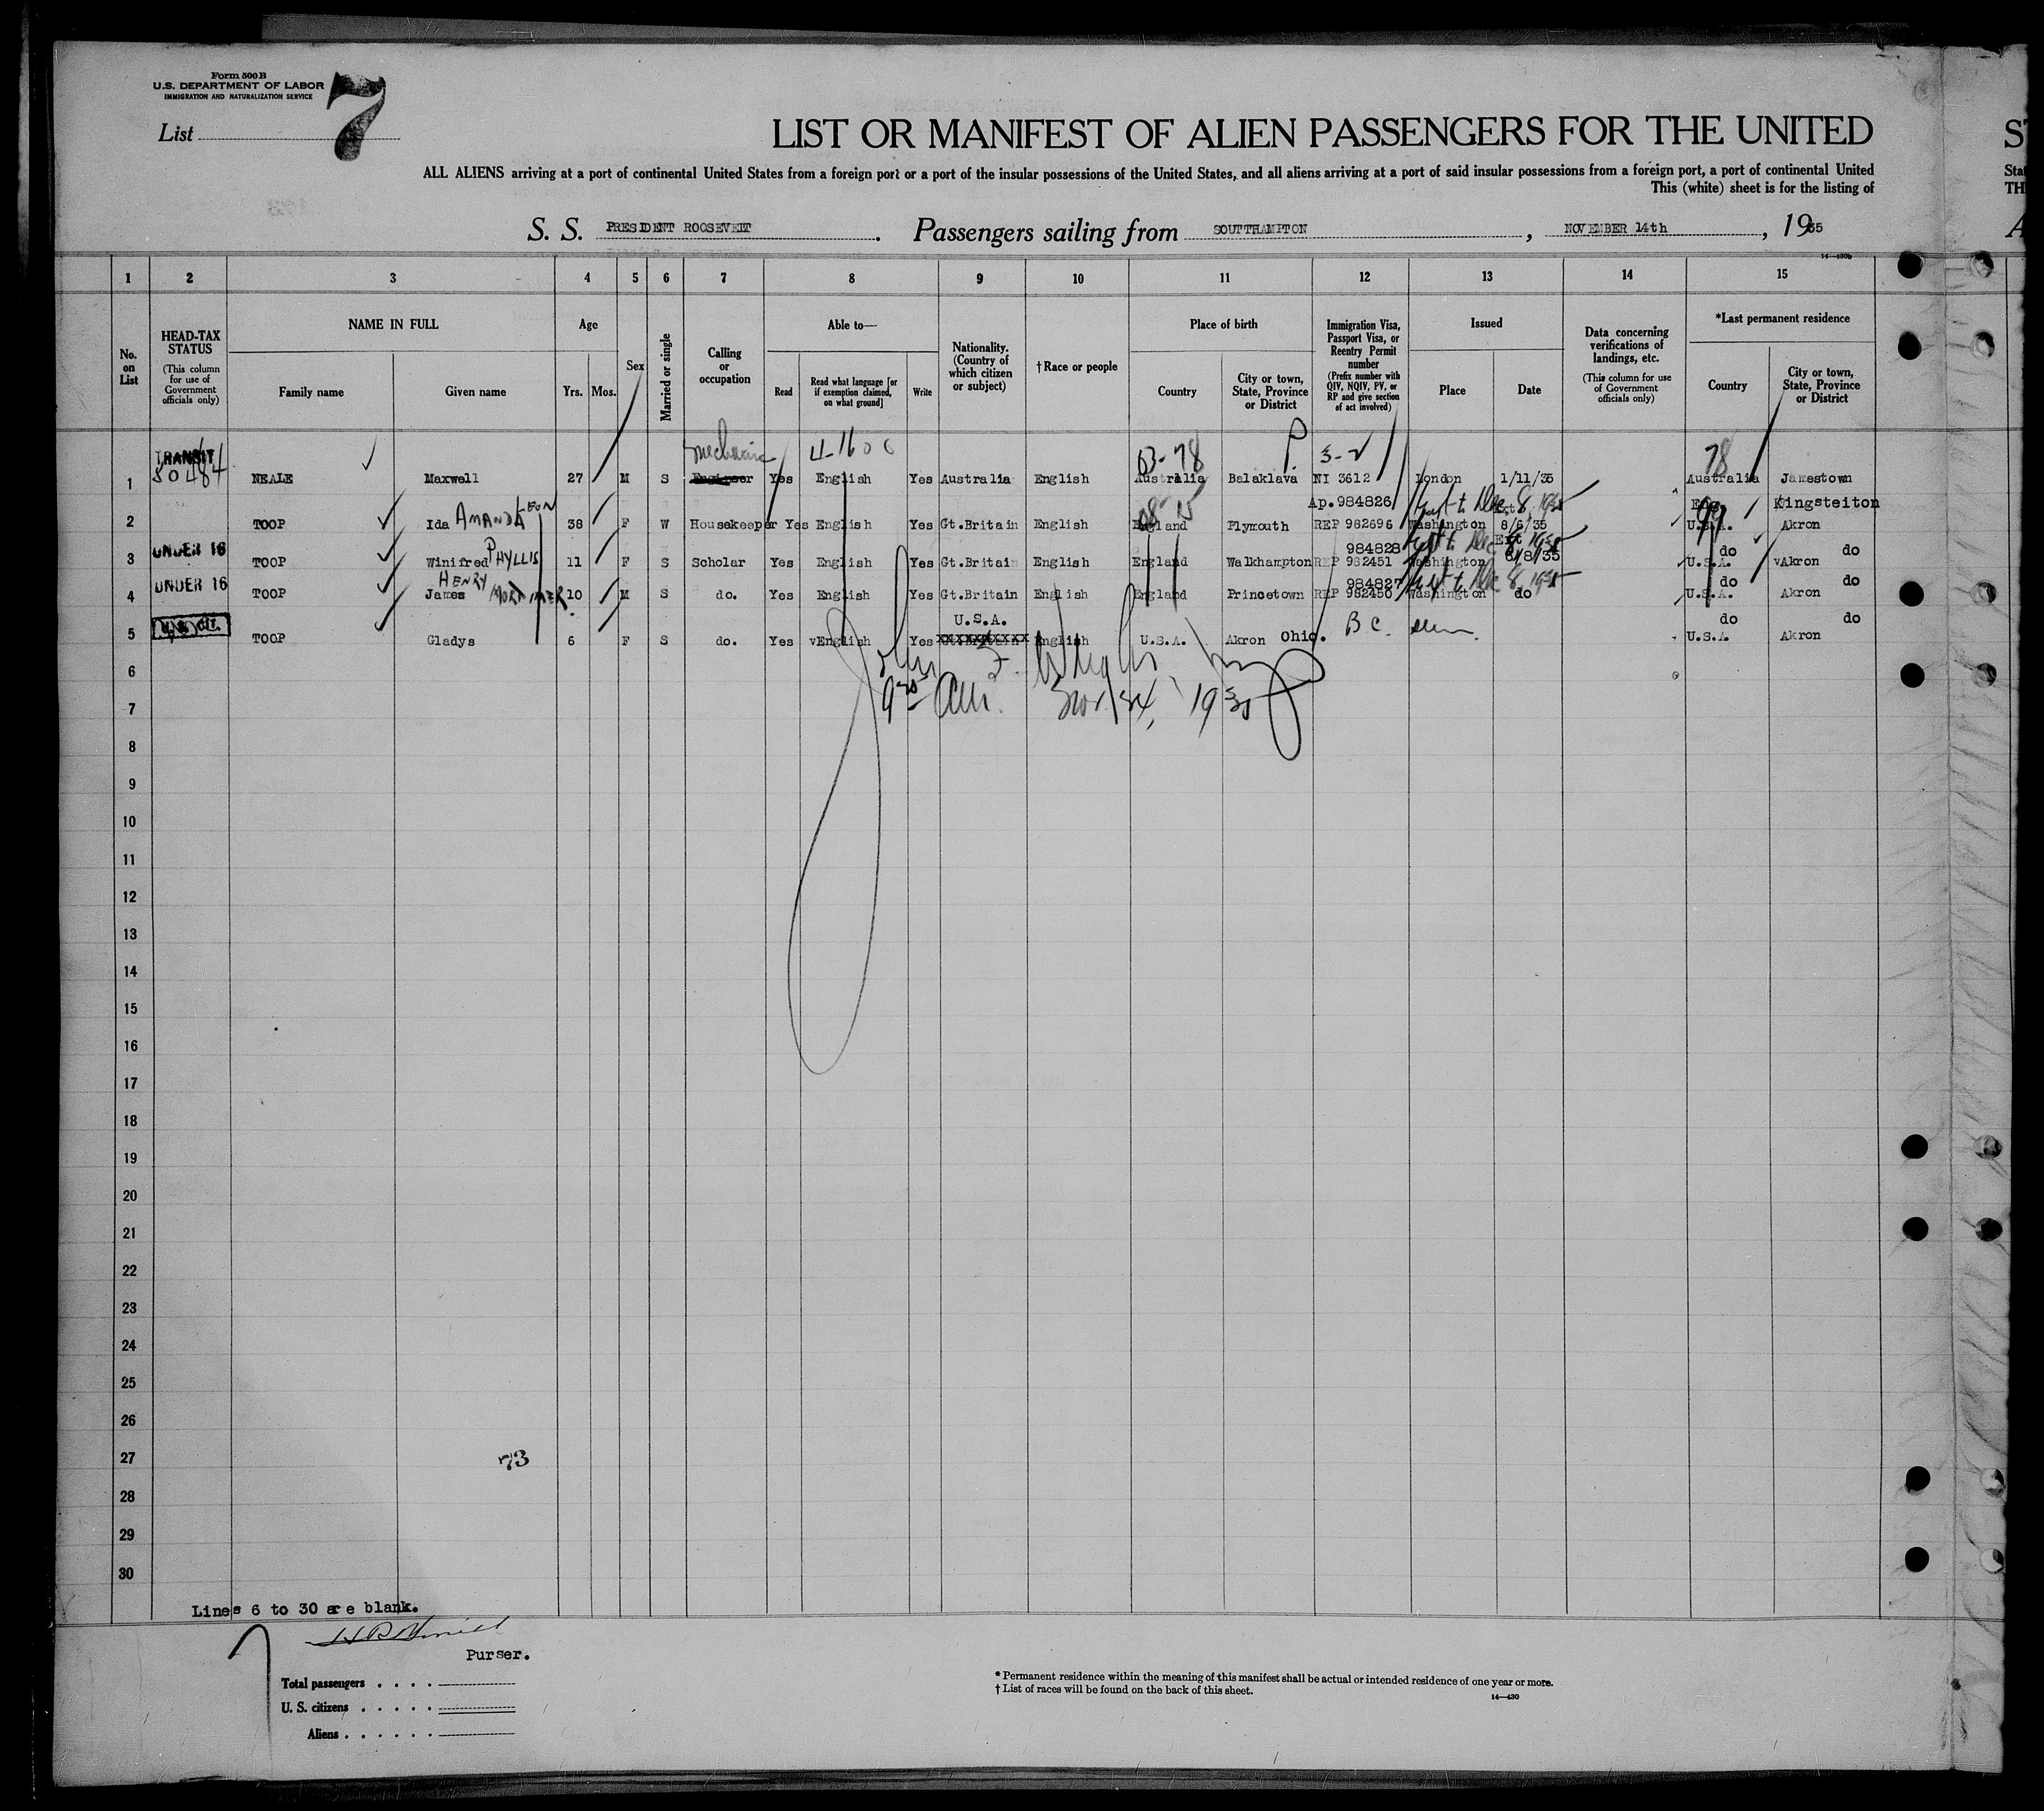 Form 500 B
U.S. DEPARTMENT OF LABOR
IMMIGRATION AND NATURALIZATION SERVICE
List 7
LIST OR MANIFEST OF ALIEN PASSENGERS FOR THE UNITED
ALL ALIENS arriving at a port of continental United States from a foreign port or a port of the insular possessions of the United States, and all aliens arriving at a port of said insular possessions from a foreign port, a port of continental United
This (white) sheet is for the listing of
S. S. PRESIDENT ROOSEVELT. Passengers sailing from SOUTTHAMITON, NOVEMBER 14th, 1935
14—430b
1 2 3 4 5 6 7 8 9 10 11 12 13 14 15
No. on List
HEAD-TAX STATUS
(This column for use of Government officials only)
NAME IN FULL
Family name
Given name
Age
Yrs.
Mos.
Sex
Married or single
Calling or occupation
Able to—
Read
Read what language [or if exemption claimed, on what ground]
Write
Nationality. (Country of which citizen or subject)
†Race or people
Place of birth
Country
City or town, State, Province or District
Immigration Visa, Passport Visa, or Reentry Permit number
(Prefix number with QIV, NQIV, PV, or RP and give section of act involved)
Issued
Place
Date
Data concerning verifications of landings, etc.
(This column for use of Government officials only)
*Last permanent residence
Country
City or town, State, Province or District
TRANSIT mechanic 4-1600 63-78 P. 3-2 78
1 50484 NEALE Maxwell 27 M S Engineer Yes English Yes Australia English Australia Balaklava NI 3612 London 1/11/35 Australia Jamestown
AMANDA LEON Ap.984826 Dec 8, 1935 Eng. Kingsteiton
2 TOOP Ida 38 F W Housekeeper Yes English Yes Gt.Britain English England Plymouth REP 982696 Washington 8/6/35 U.S.A. Akron
UNDER 16 PHYLLIS 984828 do do
3 TOOP Winifred 11 F S Scholar Yes English Yes Gt.Britain English England Walkhampton REP 982451 Washington 6/8/35 U.S.A. Akron
UNDER 16 HENRY 984827 Dec 8, 1935 do do
4 TOOP James MORTIMER 10 M S do. Yes English Yes Gt.Britain English England Princetown REP 982450 Washington do U.S.A. Akron
U.S. Cit. U.S.A. B C do do
5 TOOP Gladys 6 F S do. Yes English Yes Gt.Britain English U.S.A. Akron Ohio. U.S.A Akron
6
John F.
7
9 30 AM. Nov. 24, 1935
8
9
10
11
12
13
14
15
16
17
18
19
20
21
22
23
24
25
26
27
73
28
29
30
Lines 6 to 30 are blank.
Purser.
Total passengers
U. S. citizens
Aliens
* Permanent residence within the meaning of this manifest shall be actual or intended residence of one year or more.
† List of races will be found on the back of this sheet.
14—430